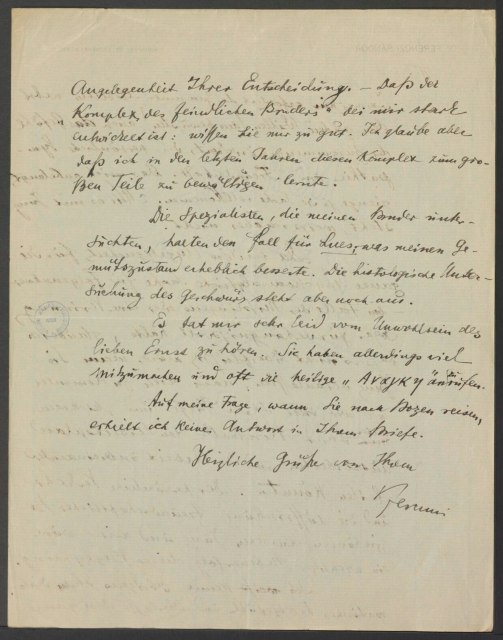 Angelegenheit Ihrer Entscheidung. – Daß der
Komplex „des feindlichen Bruders" bei mir stark
entwickelt ist, wissen Sie nur zu gut. Ich glaube aber
daß ich in den letzten Jahren diesen Komplex zum gro-
ßen Teile zu bewältigen lernte.
Die Spezialisten, die meinen Bruder unter-
suchten, halten den Fall für Lues, was meinen Ge-
mütszustand erheblich besserte. Die histologische Unter-
suchung des Geschwürs steht aber noch aus.
Es tat mir sehr leid vom Unwohlsein des
lieben Ernst zu hören. Sie haben allerdings viel
mitzumachen und oft die heilige „Αναγκη" anzurufen.
Auf meine Frage, wann Sie nach Bozen reisen,
erhielt ich keine Antwort in Ihrem Briefe.
Herzliche Grüße von Ihrem
Ferenczi